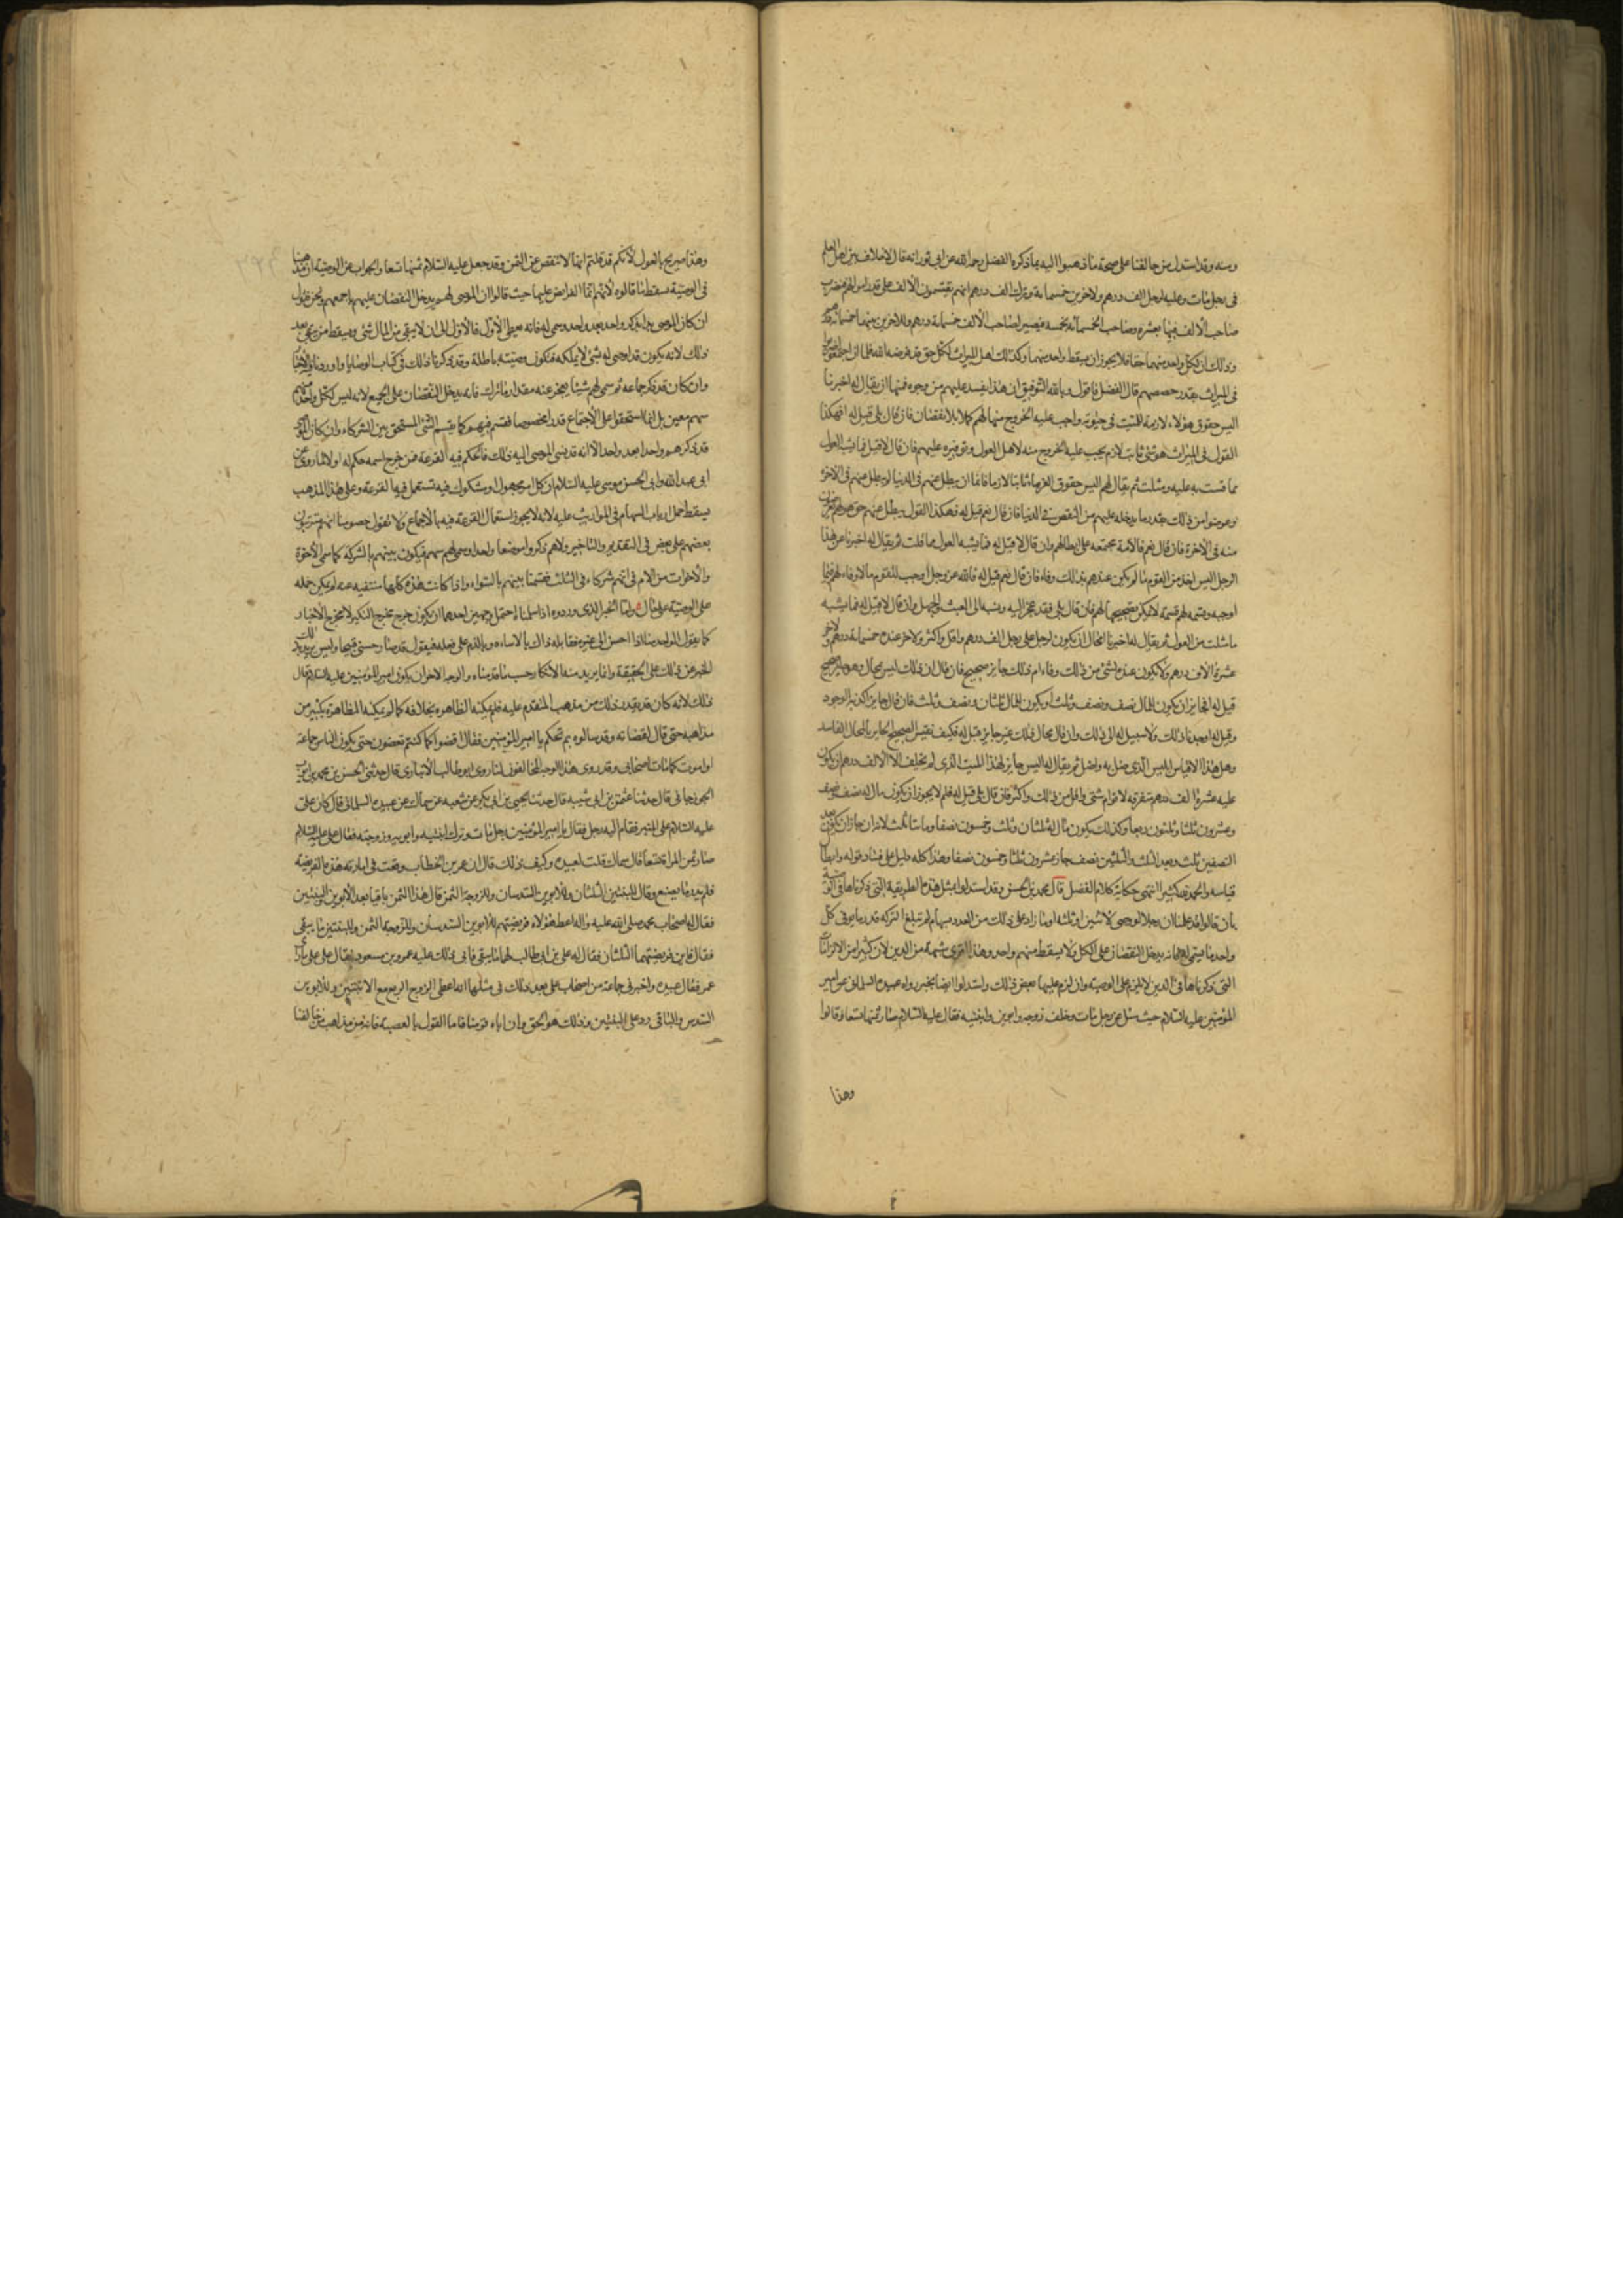 ومنه وقد استدل من خالفنا على صحة ما ذهبوا اليه بما ذكره الفضل رحمه الله عن ابي ثور انه قال لا خلاف بين اهل العلم
في رجل مات وعليه لرجل الف درهم ولاخرين خمسماءة وترك الف درهم انهم يقتسمون الالف على قدر اموالهم فيضرب
صاحب الالف فيها بعشرة وصاحب الخمسمائة بخمسة فيصير لصاحب الالف خمسماءة درهم وللاخرين بينهما خمسمائة
وذلك ان لكل واحد منهما حقا فلا يجوز ان يسقط واحد منهما وكذلك اهل الميراث لكل حق قد فرضه الله فلما ان اجتمعوا
في الميراث بقدر حصصهم قال الفضل فاقول وبالله التوفيق ان هذا يفسد عليهم من وجوه فمنها ان يقال له اخبرنا
اليس حقوق هؤلاء لازمة للميت في حيوته وواجب عليه الخروج منها لهم كملا بلا نقصان فان قال بلى قيل له افهكذا
القول في الميراث هو شئ ثابت لازم يجب عليه الخروج منه لاهل العول وتوفيره عليهم فان قال لا قيل فما يشبه العول
مما قست به عليه ومثلت ثم يقال لهم اليس حقوق الغرماء ثابتا لازما فاما ان يبطل عنهم في الدنيا لم يبطل عنهم في الاخرة
وعوضوا من ذلك بقدر ما يدخله عليهم من النقص في الدنيا فان قال نعم قيل له فهكذا القول يبطل عنهم حق هو لهم
منه في الاخرة فان قال نعم فالامة مجتمعة على ابطالهم وان قال لا قيل له فما يشبه العول مما قلت ثم يقال له اخبرنا عن هذا
الرجل اليس اخذ من القوم ما لم يكن عندهم بذلك وفاء فان قال نعم قيل له فالله عز وجل اوجب للقوم ما لا وفاء لهم فيما
اوجبه وقسمه لهم قسمة لا يمكن تصحيحها لهم فان قال بلى فقد عجز اليه ونسبه الى العبث والجهل وان قال لا قيل له فما يشبه
ما مثلت من العول ثم يقال له اخبرنا المحال ان يكون لرجل على رجل الف درهم واقل واكثر ولاخر عنده خمسماءة درهم ولاخر
عشرة الاف درهم ولا يكون عنده لشئ من ذلك وفاء ام ذلك جايز صحيح فان قال ان ذلك ليس بمحال وهو جايز صحيح
قيل له افجايز ان يكون المال نصف ونصف وثلث او يكون المال ثلثان ونصف وثلث فان قال جايز اكذبه الوجود
وقيل له اوجدنا ذلك ولا سبيل له الى ذلك وان قال محال ذلك غير جايز قيل له فكيف تقيس الصحيح الجايز بالمحال الفاسد
وهل هذا الا قياس ابليس الذي ضل به واضل ثم يقال له اليس جايز لهذا الميت الذي لم يخلف الا الالف درهم ان يكون
عليه عشرة الف درهم متفرقة لاقوام شتى واقل من ذلك واكثر فان قال بلى قيل له فلم لا يجوز ان يكون مال له نصف ونصف
وعشرون ثلثا وثلثون ربعا وكذلك يكون مال له ثلثان وثلث وخمسون نصفا ومائتا ثلث لانه ان جاز ان يكون بعد
النصفين ثلث وبعد الثلث والثلثين نصف جاز عشرون ثلثا وخمسون نصفا وهذا كله دليل على فساد قوله وابطال
قياسه والحمد لله كثيرا انتهى حكاية كلام الفضل قال محمد بن الحسن وقد استدلوا بمثل هذه الطريقة التي ذكرناها في الوصية
بان قالوا قد علمنا ان رجلا لو وصى لاثنين او ثلثه او ما زاد على ذلك من العدد بسهام لم تبلغ التركة قدر ما يوفي كل
واحد ما سمى له فانه يدخل النقصان على الكل ولا يسقط منهم واحد وهذا اقوى شبهة من الدين لان كثيرا من الالزامات
التي ذكرناها في الدين لا يلزم على الوصية وان لزم عليها بعض ذلك واستدلوا ايضا بخبر رواه عبيدة السلماني عن امير
المؤمنين عليه السلام حيث سئل عن رجل مات وخلف زوجة وابوين وابنتيه فقال عليه السلام صار ثمنها تسعا وقالوا
وهذا
وهذا صريح بالعول لانكم قد قلتم انها لا تنقص عن الثمن وقد جعل عليه السلام ثمنها تسعا والجواب عن الوصية ان مذهبنا
في الوصية يسقط ما قالوه لانهم انما الفرايض عليها حيث قالوا ان الموصى لهم يدخل النقصان عليهم باجمعهم ونحن نقول
ان كان الموصي بدا بذكر واحد بعد واحد وسمى له فانه يعطى الاول فالاول الى ان لا يبقى من المال شئ ويسقط من يبقى بعد
ذلك لانه يكون قد اوصى له بشئ لا يملكه فتكون وصيته باطلة وقد ذكرنا ذلك في كتاب الوصايا واوردنا فيه الاخبار
وان كان قد ذكر جماعة ثم سمى لهم شيئا يعجز عنه مقدار ما ترك فانه يدخل النقصان على الجميع لانه ليس لكل واحد منهم
سهم معين بل انما استحقوا على الاجتماع قدرا مخصوصا فقسم فيهم كما يقسم الشئ المستحق بين الشركاء وان كان الموصي
قد ذكرهم واحدا بعد واحد الا انه قد نسي الموصى اليه ذلك فالحكم فيه القرعة فمن خرج اسمه حكم له اولا لما روى عن
ابي عبد الله وابي الحسن موسى عليه السلام ان كل امر مجهول او مشكوك فيه تستعمل فيها القرعة وعلى هذا المذهب
يسقط حمل ارباب السهام في المواريث عليه لانه لا يجوز استعمال القرعة فيه بالاجماع ولا نقول خصومنا انهم مترتبون
بعضهم على بعض في التقديم والتاخير ولا هم ذكروا موضعا واحدا وسمى لهم سهم فيكون بينهم بالشركة كما سمى الاخوة
والاخوات من الام في انهم شركاء في الثلث فقسمنا بينهم بالسواء واذا كانت هذه كلها منتفية عنه لم يكن حمله
على الوصية على حال واما الخبر الذي رووه اذا سلمناه احتمل وجهين احدهما ان يكون خرج مخرج النكير لا مخرج الاخبار
كما يقول الواحد منا اذا احسن الى غيره فقابله ذلك بالاساءة وبالذم على فعله فيقول قد صار حسني قبيحا وليس يريد بذلك
الخبر عن ذلك على الحقيقة وانما يريد منه الانكار حسب ما قدمناه والوجه الاخر ان يكون امير المؤمنين عليه السلام قال
ذلك لانه كان قد تقرر ذلك من مذهب المتقدم عليه فلم يمكنه المظاهرة بخلافه كما لم يمكنه المظاهرة بكثير من
مذاهبه حتى قال لقضاته وقد سالوه بم نحكم يا امير المؤمنين فقال اقضوا كما كنتم تقضون حتى يكون الناس جماعة
او اموت كما مات اصحابي وقد روى هذا الوجه المخالفون لنا روى ابو طالب الانباري قال حدثني الحسن بن محمد بن ايوب
الجوزجاني قال حدثنا عثمن بن ابي شيبة قال حدثنا يحيى بن ابي بكر عن شعبة عن سماك عن عبيدة السلماني قال كان علي
عليه السلام على المنبر فقام اليه رجل فقال يا امير المؤمنين رجل مات وترك ابنتيه وابويه وزوجته فقال علي عليه السلام
صار ثمن المراة تسعا قال سماك قلت لعبيدة وكيف ذلك قال ان عمر بن الخطاب وقعت في امارته هذه الفريضة
فلم يدر ما يصنع وقال للبنتين الثلثان وللابوين السدسان وللزوجة الثمن قال هذا الثمن باقيا بعد الابوين والبنتين
فقال له اصحاب محمد صلى الله عليه واله اعط هؤلاء فريضتهم للابوين السدسان وللزوجة الثمن وللبنتين ما يبقى
فقال فاين فريضتهما الثلثان فقال له علي بن ابي طالب لهما ما يبقى فابى ذلك عليه عمر وبن مسعود فقال علي على ما راى
عمر فقال عبيدة واخبرني جماعة من اصحاب علي بعد ذلك في مثلها انه اعطى الزوج الربع مع الابنتين وللابوين
السدس والباقي رد على البنتين وذلك هو الحق وان اباه قومنا فاما القول بالعصبة فانه من مذاهب من خالفنا